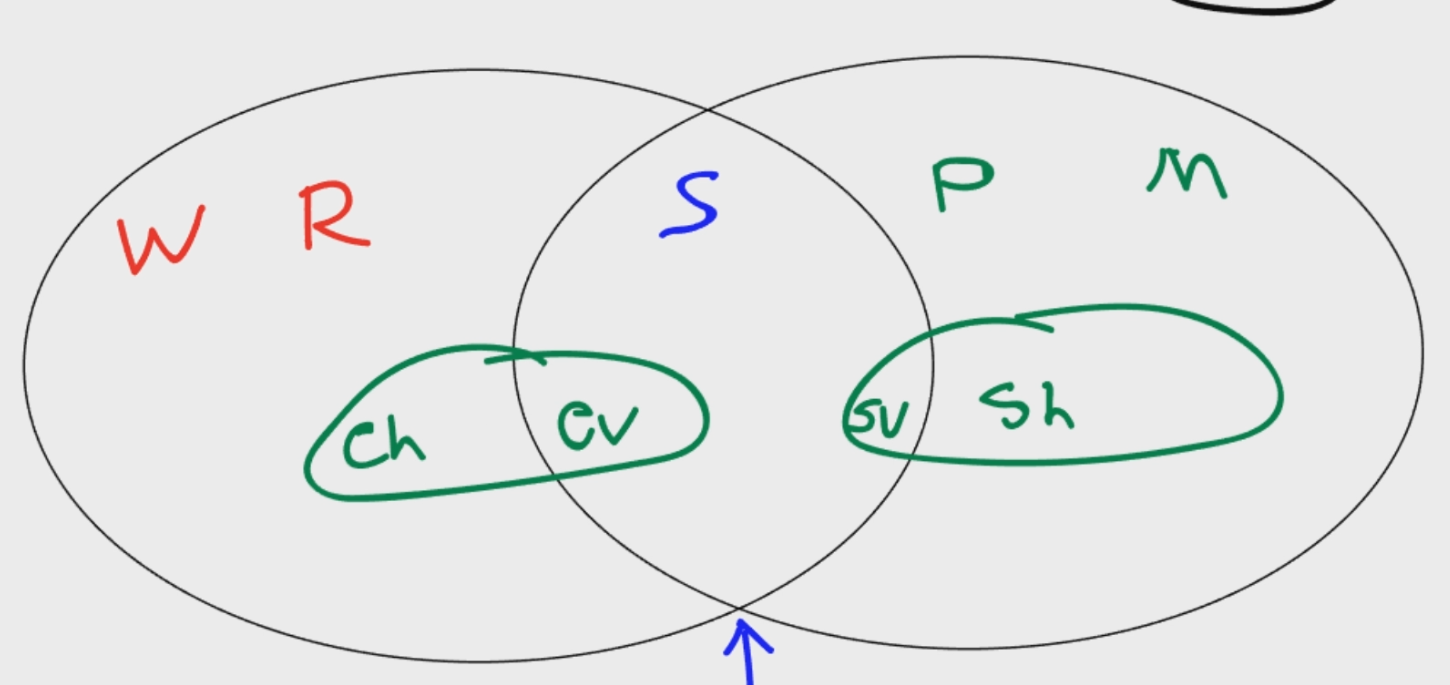 W R S P M
Ch Cv Sv Sh